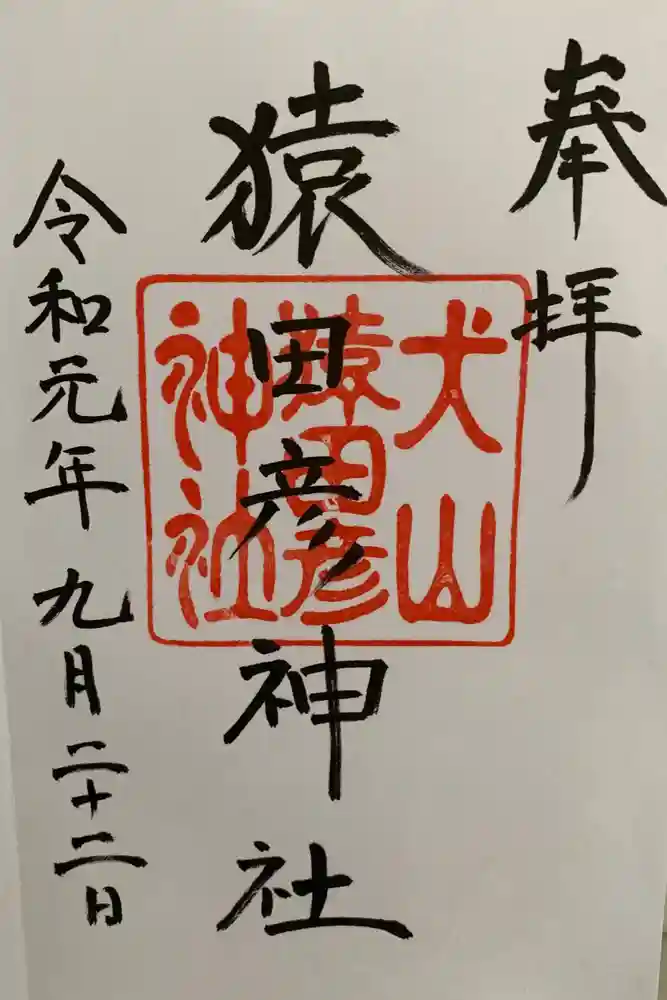 奉拝
犬山
猿田彦
神社
猿田彦神社
令和元年九月二十二日